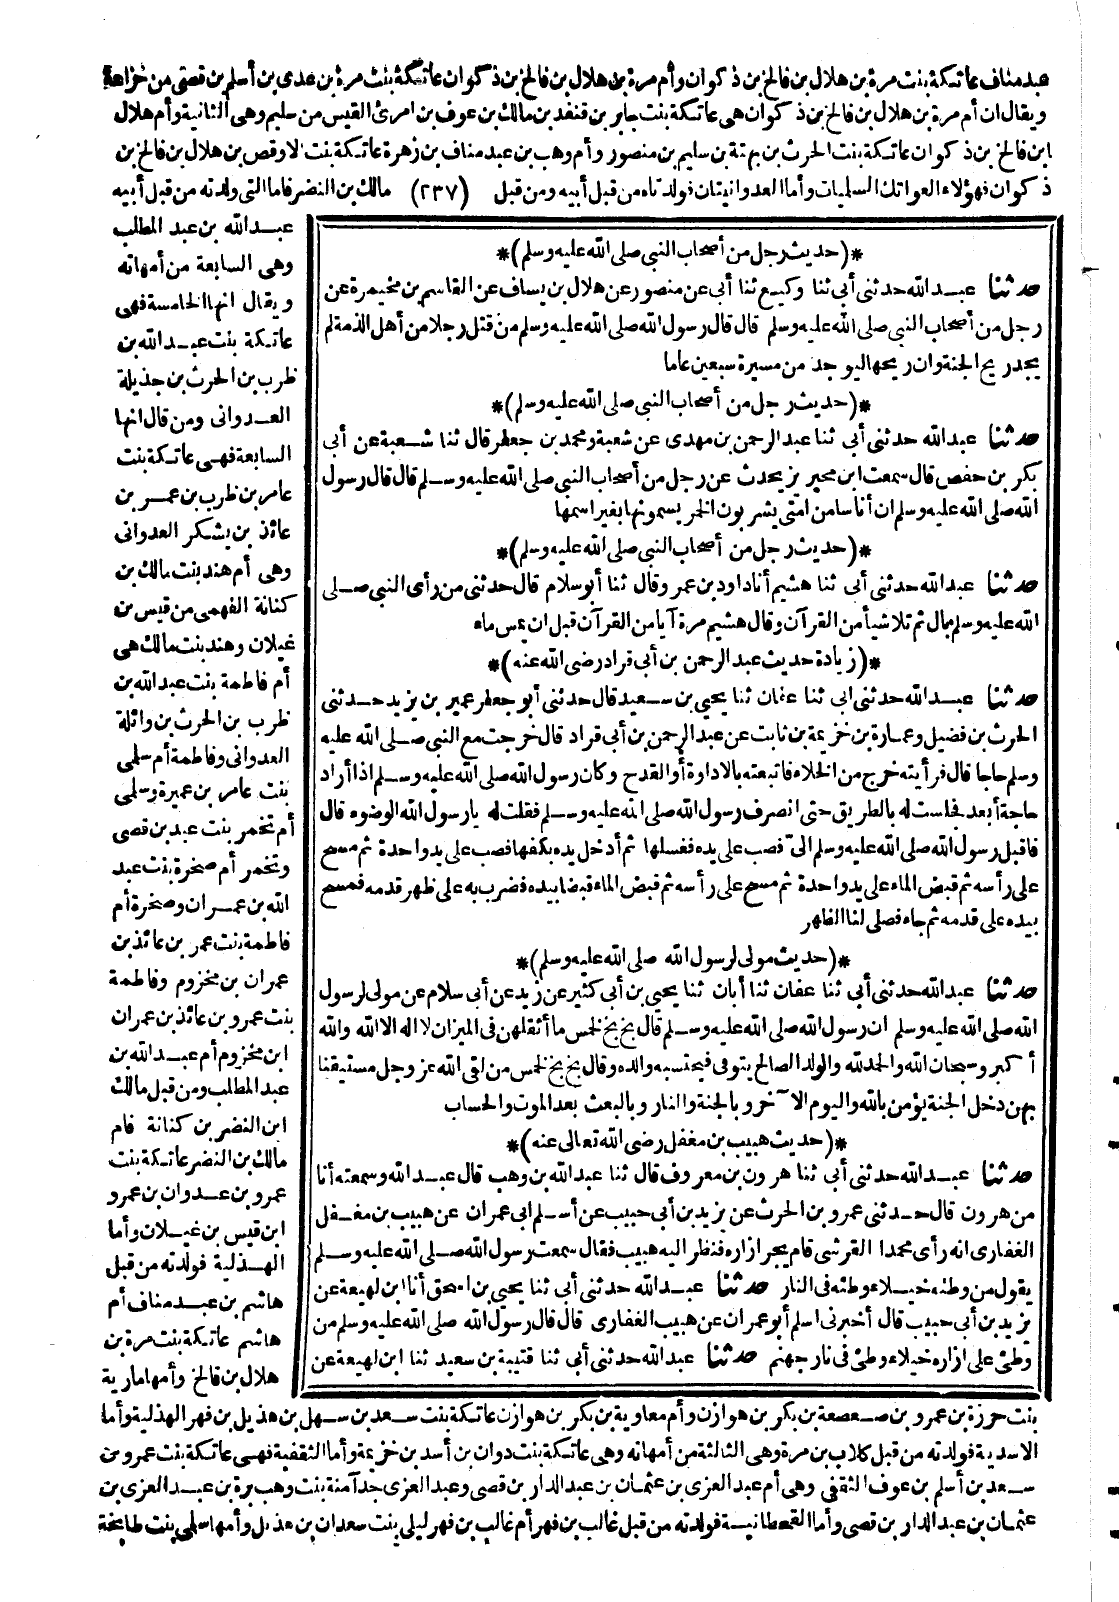 عبد مناف عاتكة بنت مرة بن هلال بن فالخ بن ذكوان وأم مرة بن هلال بن فالخ بن ذكوان عاتكة بنت مرة بن عدى بن أسلم بن قصى من خزاعة
ويقال ان أم مرة بن هلال بن فالخ بن ذكوان هى عاتكة بنت جابر بن قنفد بن مالك بن عوف بن امرئ القيس من سليم وهى الثانية وأم هلال
ابن فالخ بن ذكوان عاتكة بنت الحرث بن بهتة بن سليم بن منصور وأم وهب بن عبد مناف بن زهرة عاتكة بنت الاوقص بن هلال بن فالخ بن
ذكوان فهؤلاء العواتك السلميات وأما العدوانيتان فولدتاه من قبل أبيه ومن قبل (٢٣٧) مالك بن النضر فاما التى ولدته من قبل أبيه
عبد الله بن عبد المطلب
وهى السابعة من أمهاته
ويقال انها الخامسة فهى
عاتكة بنت عبد الله بن
ظرب بن الحرث بن جذيلة
العدوانى ومن قال انها
السابعة فهى عاتكة بنت
عامر بن ظرب بن عمر بن
عائذ بن يشكر العدوانى
وهى أم هند بنت مالك بن
كنانة الفهمى من قيس بن
غيلان وهند بنت مالك هى
أم فاطمة بنت عبد الله بن
ظرب بن الحرث بن وائلة
العدوانى وفاطمة أم سلمى
بنت عامر بن عميرة وسلمى
أم تخمر بنت عبد بن قصى
وتخمر أم صخرة بنت عبد
الله بن عمران وصخرة أم
فاطمة بنت عمر بن عائذ بن
عمران بن مخزوم وفاطمة
بنت عمرو بن عائذ بن عمران
ابن مخزوم أم عبد الله بن
عبد المطلب ومن قبل مالك
ابن النضر بن كنانة فام
مالك بن النضر عاتكة بنت
عمرو بن عدوان بن عمرو
ابن قيس بن غيلان وأما
الهذلية فولدته من قبل
هاشم بن عبد مناف أم
هاشم عاتكة بنت مرة بن
هلال بن فالخ وأمها مارية
*(حديث رجل من أصحاب النبي صلى الله عليه وسلم)*
حدثنا عبد الله حدثنى أبى ثنا وكيع ثنا أبى عن منصور عن هلال بن يساف عن القاسم بن مخيمرة عن
رجل من أصحاب النبى صلى الله عليه وسلم قال قال رسول الله صلى الله عليه وسلم من قتل رجلا من أهل الذمة لم
يجد ريح الجنة وان ريحها ليوجد من مسيرة سبعين عاما
*(حديث رجل من أصحاب النبى صلى الله عليه وسلم)*
حدثنا عبد الله حدثنى أبى ثنا عبد الرحمن بن مهدى عن شعبة ومحمد بن جعفر قال ثنا شعبة عن أبى
بكر بن حفص قال سمعت ابن محيريز يحدث عن رجل من أصحاب النبى صلى الله عليه وسلم قال قال رسول
الله صلى الله عليه وسلم ان أناسا من امتى يشربون الخمر يسمونها بغير اسمها
*(حديث رجل من أصحاب النبى صلى الله عليه وسلم)*
حدثنا عبد الله حدثنى أبى ثنا هشيم أنا داود بن عمر وقال ثنا أبو سلام قال حدثنى من رأى النبى صلى
الله عليه وسلم بال ثم تلا شيأ من القرآن وقال هشيم مرة آيا من القرآن قبل ان يمس ماء
*(زيادة حديث عبد الرحمن بن أبى قراد رضى الله عنه)*
حدثنا عبد الله حدثنى ابى ثنا عفان ثنا يحيى بن سعيد قال حدثنى أبو جعفر عمير بن يزيد حدثنى
الحرث بن فضيل وعمارة بن خزيمة بن ثابت عن عبد الرحمن بن أبى قراد قال خرجت مع النبى صلى الله عليه
وسلم حاجا قال فرأيته خرج من الخلاء فاتبعته بالاداوة أو القدح وكان رسول الله صلى الله عليه وسلم اذا أراد
حاجة أبعد فجلست له بالطريق حتى انصرف رسول الله صلى الله عليه وسلم فقلت له يا رسول الله الوضوء قال
فاقبل رسول الله صلى الله عليه وسلم الىّ فصب على يده فغسلها ثم أدخل يده بكفها فصب على يد واحدة ثم مسح
على رأسه ثم قبض الماء على يد واحدة ثم مسح على رأسه ثم قبض الماء قبضا بيده فضرب به على ظهر قدمه فمسح
بيده على قدمه ثم جاء فصلى لنا الظهر
*(حديث مولى لرسول الله صلى الله عليه وسلم)*
حدثنا عبد الله حدثنى أبى ثنا عفان ثنا أبان ثنا يحيى بن أبى كثير عن زيد عن أبى سلام عن مولى لرسول
الله صلى الله عليه وسلم ان رسول الله صلى الله عليه وسلم قال بخ بخ لخمس ما أثقلهن فى الميزان لا اله الا الله والله
أكبر وسبحان الله والحمد لله والولد الصالح يتوفى فيحتسبه والده وقال بخ بخ لخمس من لقى الله عز وجل مستيقنا
بهن دخل الجنة يؤمن بالله واليوم الآخر وبالجنة والنار وبالبعث بعد الموت والحساب
*(حديث هبيب بن مغفل رضى الله تعالى عنه)*
حدثنا عبد الله حدثنى أبى ثنا هرون بن معروف قال ثنا عبد الله بن وهب قال عبد الله وسمعته أنا
من هرون قال حدثنى عمرو بن الحرث عن يزيد بن أبى حبيب عن أسلم ابى عمران عن هبيب بن مغفل
الغفارى انه رأى محمدا القرشى قام يجر ازاره فنظر اليه هبيب فقال سمعت رسول الله صلى الله عليه وسلم
يقول من وطئه خيلاء وطئه فى النار حدثنا عبد الله حدثنى أبى ثنا يحيى بن اسحق أنا ابن لهيعة عن
يزيد بن أبى حبيب قال أخبرنى اسلم أبو عمران عن هبيب الغفارى قال قال رسول الله صلى الله عليه وسلم من
وطئ على ازاره خيلاء وطئ فى نار جهنم حدثنا عبد الله حدثنى أبى ثنا قتيبة بن سعيد ثنا ابن لهيعة عن
بنت حرزة بن عمرو بن صعصعة بن بكر بن هوازن وأم معاوية بن بكر بن هوازن عاتكة بنت سعد بن سهل بن هذيل بن فهر الهذلية وأما
الاسدية فولدته من قبل كلاب بن مرة وهى الثالثة من أمهاته وهى عاتكة بنت دوان بن أسد بن خزيمة وأما الثقفية فهى عاتكة بنت عمرو بن
سعد بن أسلم بن عوف الثقفى وهى أم عبد العزى بن عثمان بن عبد الدار بن قصى وعبد العزى جد آمنة بنت وهب برة بن عبد العزى بن
عثمان بن عبد الدار بن قصى وأما القحطانية فولدته من قبل غالب بن فهر أم غالب بن فهر ليلى بنت سعدان بن هذيل وأمها سلمى بنت طابخة